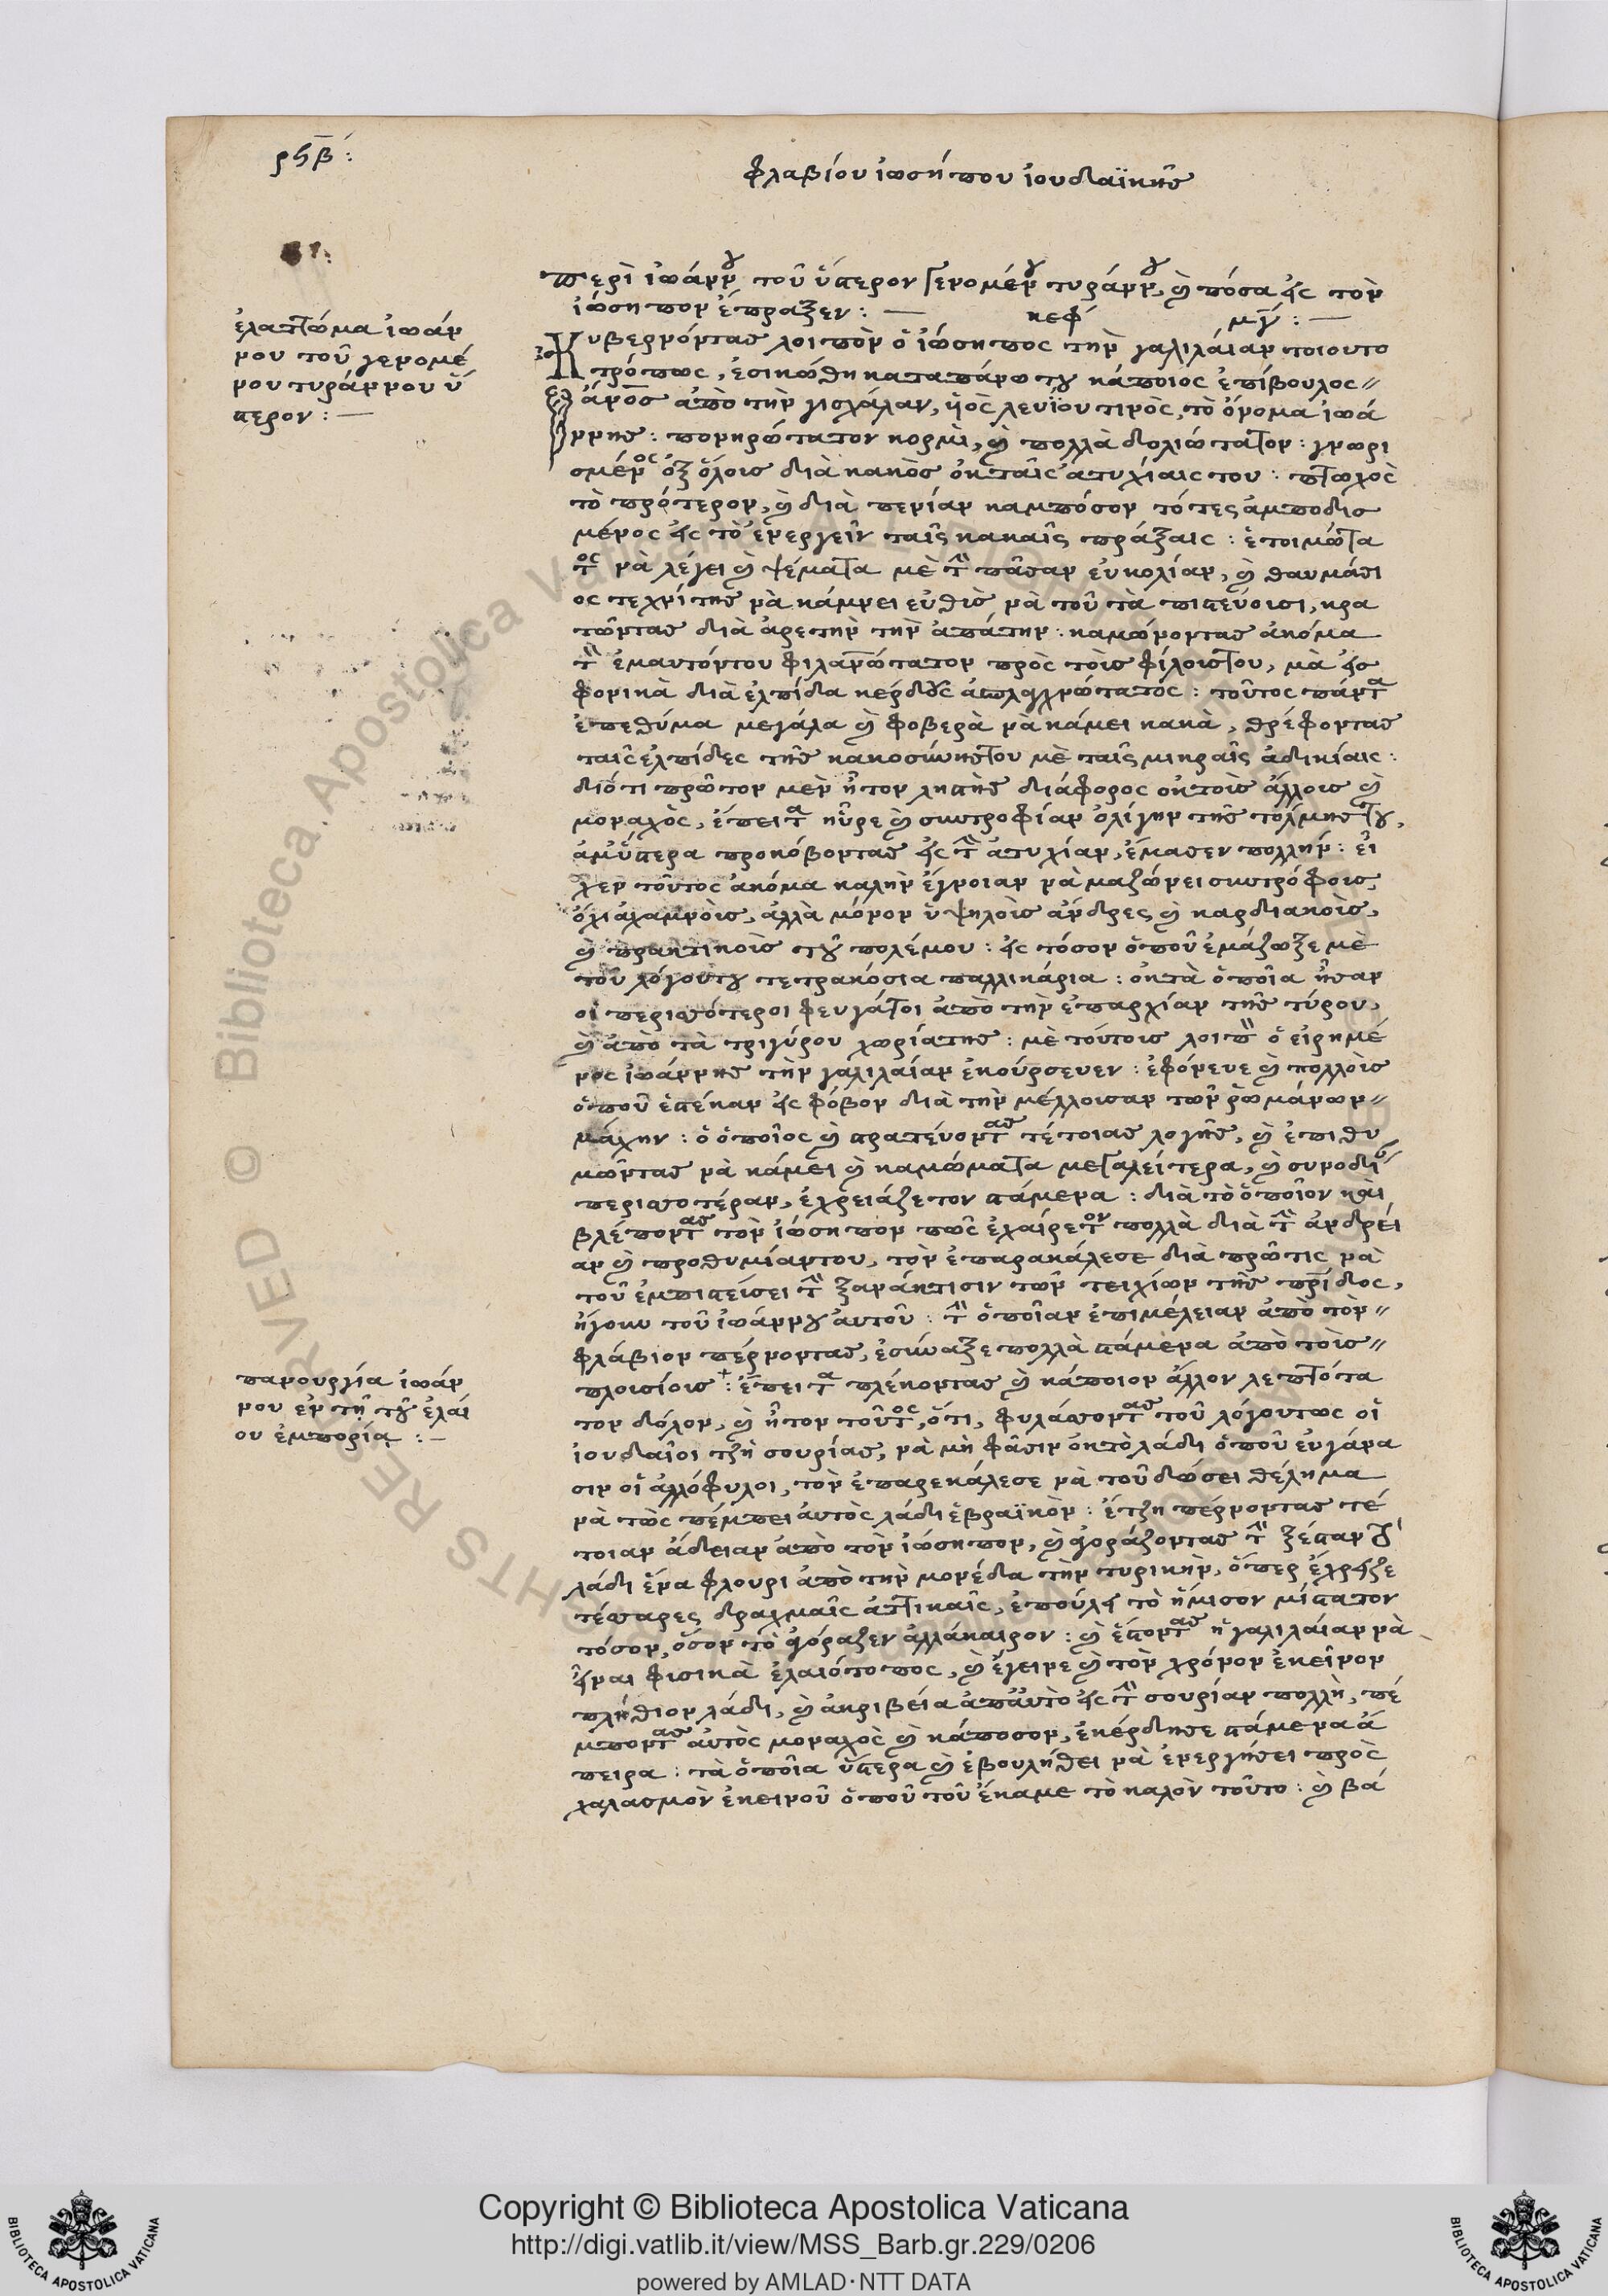 ρϟβ:
φλαβίου ἰωσήπου ἰουδαϊκῆς
περὶ ἰωάννου τοῦ ὕστερον γενομένου τυράννου, καὶ πόσα εἰς τὸν
ἰώσηπον ἔπραξεν: — κεφ μγ: —
ἐλάττωμα ἰωάν
νου τοῦ γενομέ
νου τυράννου ὕ
στερον: —
Κυβερνόντας λοιπὸν ὁ ἰώσηπος τὴν γαλιλάιαν τοιουτο
τρόπως, ἐσικώθη καταπάνω του κάποιος ἐπίβουλος
ἀπὸ τὴν γισχάλαν, ὑὸς λευΐου τινὸς, τὸ ὄνομα ἰωά
ννης: πονηρώτατον κορμὶ, καὶ πολλὰ δολιώτατον: γνωρι
σμένος ὀξ ὅλοις διὰ κακὸς ὀκ ταῖς ἀτυχίαις του: πτωχὸς
τὸ πρότερον, καὶ διὰ πενίαν καμπόσον τότες ἀμποδισ
μένος εἰς τὸ ἐνεργεῖν ταῖς κακαῖς πράξαις: ἑτοιμώτα
τος νὰ λέγει καὶ ψέματα μὲ τὴν πᾶσαν εὐκολίαν, καὶ θαυμάσι
ος τεχνίτης νὰ κάμνει εὐθὶς νὰ τοῦ τὰ πιστεύοισι, κρα
τῶντας διὰ ἀρετὴν τὴν ἀπάτην: καμώνοντας ἀκόμα
τὸν ἐμαυτόντου φιλανθρωπότατον πρὸς τὸις φίλοιστου, μὰ εἰς
φονικὰ διὰ ἐλπίδα κέρδους ἀπλαγχνώτατος: τοῦτος πάντα
ἐπεθύμα μεγάλα καὶ φοβερὰ νὰ κάμει κακὰ, θρέφοντας
ταῖς ἐλπίδες τῆς κακοσύνηςτου μὲ ταῖς μικραῖς ἀδικίαις:
διότι πρῶτον μὲν ἦτον ληστὴς διάφορος ὀκ τοὶς ἄλλοις καὶ
μοναχὸς, ἔπειτα ηὗρε καὶ συντροφίαν ὀλίγην τῆς τόλμης του,
ἀμὕστερα προκόβοντας εἰς τὴν ἀτυχίαν, ἔμασεν πολλήν: εἶ
χεν τοῦτος ἀκόμα καλὴν ἔγνοιαν νὰ μαζώνει συντρόφοις,
ὄχι ἀχαμνὸις, ἀλλὰ μόνον ὑψηλὸις ἄνδρες καὶ καρδιακοὶς,
καὶ πρακτικοὶς τοῦ πολέμου: εἰς τόσον ὁποῦ ἐμάζωξε μὲ
τοῦ λόγουτου τετρακόσια παλλικάρια: ὀκ τὰ ὁποῖα ἦσαν
οἱ περισσότεροι φευγάτοι ἀπὸ τὴν ἐπαρχίαν τῆς τύρου,
καὶ ἀπὸ τὰ τριγύρου χωρίατης: μὲ τούτοις λοιπὸν ὁ εἰρημέ
νος ἰωάννης τὴν γαλιλαίαν ἐκούρσευεν: ἐφόνευε καὶ πολλὸις
ὁποῦ ἐστέκαν εἰς φόβον διὰ τὴν μέλλοισαν τῶν ῥωμάνων
μάχην: ὁ ὁποῖος καὶ στρατεύοντας τέτοιας λογῆς, καὶ ἐπιθυ
μῶντας νὰ κάμει καὶ καμώματα μεγαλείτερα, καὶ συνοδί
περισσοτέραν, ἐχρειάζετον στάμενα: διὰ τὸ ὁποῖον καὶ
βλέποντας τὸν ἰώσηπον πῶς ἐχαίρετον πολλὰ διὰ τὴν ἀνδρεί
αν καὶ προθυμίαντου, τὸν ἐπαρακάλεσε διὰ πρῶτις νὰ
τοῦ ἐμπιστεύσει τὴν ξανάκτισιν τῶν τειχίων τῆς πρίδος,
ἤγουν τοῦ ἰωάννου ἀυτοῦ: τὴν ὁποῖαν ἐπιμέλειαν ἀπὸ τὸν
φλάβιον πέρνοντας, ἐσύναξε πολλὰ στάμενα ἀπὸ τοὶς
πλοισίοις: ἔπειτα πλέκοντας καὶ κάποιον ἄλλον λεπτότα
τον δόλον, καὶ ἦτον τοῦτος, ὅτι, φυλάσσοντας τοῦ λόγουτως οἱ
πανουργία ἰωάν
νου ἐν τῇ τοῦ ἐλαί
ου ἐμπορίᾳ: —
ἰουδαῖοι τζὴ σουρίας, νὰ μὴ φᾶσιν ὀκ τὸ λάδι ὁποῦ εὐγάνα
σιν οἱ ἀλλόφυλοι, τὸν ἐπαρεκάλεσε νὰ τοῦ δώσει θέλημα
νὰ τῶς πέμπει ἀυτὸς λάδι ἑβραϊκὸν: ἔτζη πέρνοντας τέ
τοιαν ἄδειαν ἀπὸ τὸν ἰώσηπον, καὶ ἀγοράζοντας τὴν ξέσταν
λάδι ἕνα φλουρι ἀπὸ τὴν μονέδα τὴν τυρικὴν, ὅπερ ἔχρηζε
τέσσαρες δραχμαῖς ἀττικαῖς, ἐπούλει τὸ ἥμισον μίστατον
τόσον, ὅσον τὸ ἀγόραζεν ἀλλάκαιρον: καὶ ἔστοντας ἡ γαλιλάιαν νὰ
εἶναι φισικὰ ἐλαιότοπος, καὶ ἔγεινε καὶ τὸν χρόνον ἐκεῖνον
πλήθιον λάδι, καὶ ἀκριβεία ἀπἀυτὸ εἰς τὴν σουρίαν πολλὴ, πέ
μποντας ἀυτὸς μοναχὸς καὶ κάποσον, ἐκέρδησε στάμενα ἄ
πειρα: τὰ ὁποῖα ὕστερα καὶ ἐβουλήθει νὰ ἐνεργήσει πρὸς
χαλασμὸν ἐκεινοῦ ὁποῦ τοῦ ἔκαμε τὸ καλὸν τοῦτο: καὶ βά
Copyright © Biblioteca Apostolica Vaticana
http://digi.vatlib.it/view/MSS_Barb.gr.229/0206
powered by AMLAD·NTT DATA
BIBLIOTECA APOSTOLICA VATICANA
BIBLIOTECA APOSTOLICA VATICANA